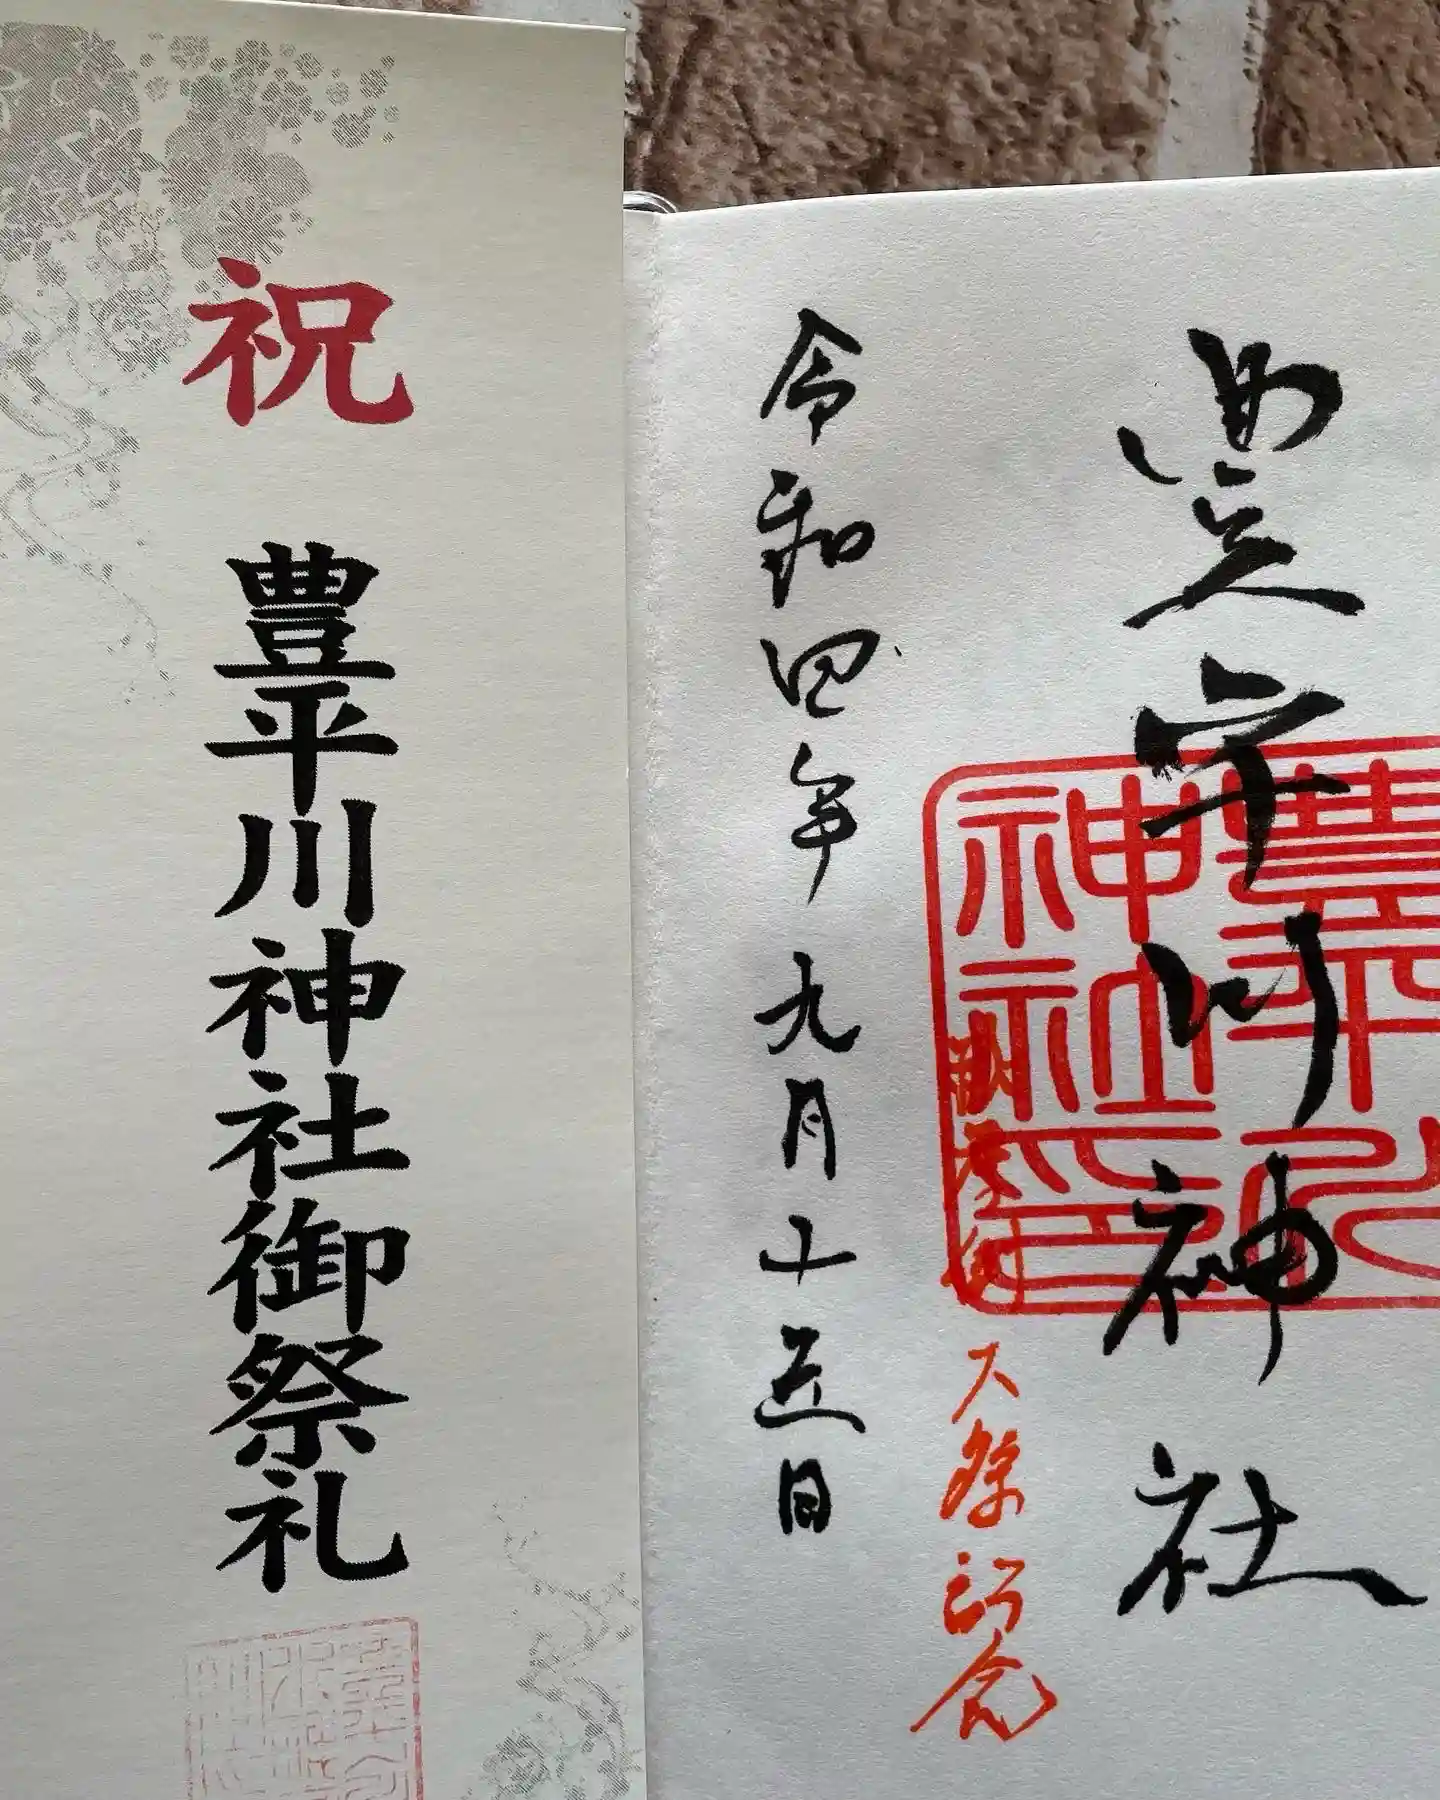 祝
豊平川神社御祭礼
豊平川神社
豊平川
神社印
大祭記念
令和四年九月十五日